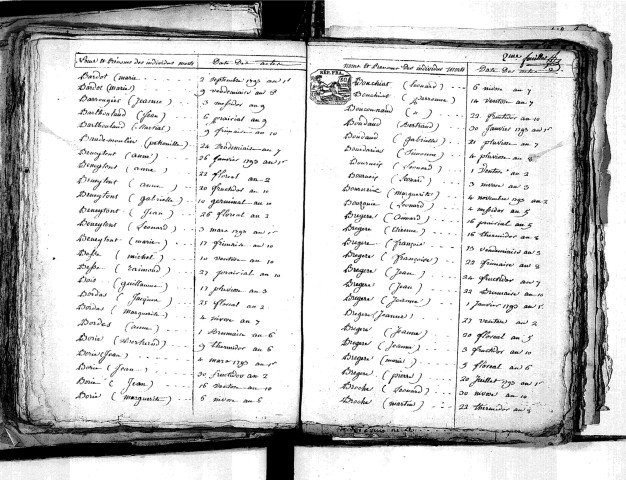 Noms et Prénoms des individus morts Date des actes
Bardot (marie) 2 septembre 1793 an 1er
Bardot (marie) 9 vendemiaire an 8
(Jeanne) 3 messidor an 9
Barthouland (Jean) 6 prairial an 9
Barthouland (Martial) 9 frimaire an 10
(petronille) 24 vendemiaire an 7
Beneytout (anne) 26 janvier 1793 an 1er
Beneytout (anne) 22 floreal an 2
Beneytout (anne) 20 fructidor an 10
Beneytout (gabrielle) 10 germinal an 10
Beneytout (Jean) 26 floreal an 2
Beneytout (Leonard) 3 mars 1793 an 1er
Beneytout (marie) 17 frimaire an 10
Besse (michel) 10 ventose an 10
Besse 27 prairial an 10
Bois (guillaume) 17 pluviose an 3
Bordas (Jacques) 25 floreal an 2
Bordas (marguerite) 4 nivose an 7
Bordes (anne) 1 Brumaire an 6
Borie (Bertrand) 9 thermidor an 6
Borie (Jean) 4 mars 1793 an 1er
Borie (Jean) 30 fructidor an 2
Borie (Jean) 16 ventose an 10
Borie (marguerite) 6 nivose an 6
2eme feuillet
Noms et Prénoms des individus morts Date des actes
RÉP. FRA.
Bouchiat (Leonard) 6 nivose an 7
Bouchiat 14 ventose an 7
22 fructidor an 10
Boudaud (Bertrand) 30 janvier 1793 an 1er
Boudaud (gabrielle) 21 pluviose an 7
(Simonne) 4 pluviose an 8
(Leonard) 1 ventose an 2
3 nivose an 3
(marguerite) 4 novembre 1793 an 2
(Leonard) 4 messidor an 5
Bregere (aimard) 16 prairial an 5
Bregere (Etienne) 16 thermidor an 8
Bregere (françois) 13 vendemiaire an 3
Bregere (françoise) 22 frimaire an 8
Bregere (Jean) 24 fructidor an 7
Bregere (Jean) 22 Brumaire an 10
Bregere (Jeanne) 1 janvier 1793 an 1er
Bregere (Jeanne) 27 ventose an 2
Bregere (Jeanne) 20 floreal an 5
Bregere (Jeanne) 3 fructidor an 10
Bregere (marie) 5 floreal an 6
Bregere (pierre) 20 juillet 1793 an 1er
Broche (Leonard) 30 nivose an 10
Broche (martin) 22 thermidor an 8